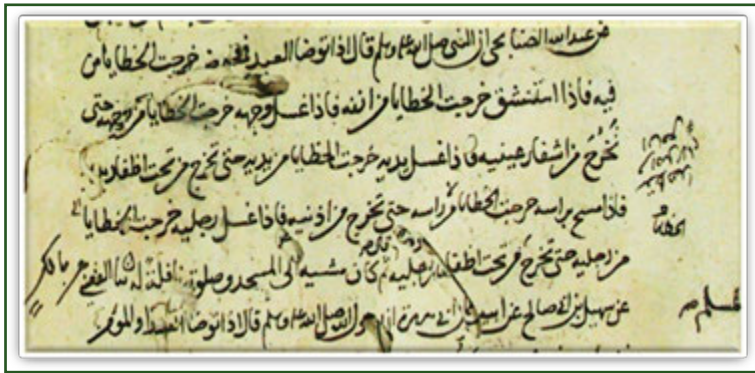 عن عبدالله الصنابحي ان النبي صلى الله عليه وسلم قال اذا توضا العبد فمضمض خرجت الخطايا من
فيه فاذا استنشق خرجت الخطايا من انفه فاذا غسل وجهه خرجت الخطايا من وجهه حتى
تخرج من اشفار عينيه فاذا غسل يديه خرجت الخطايا من يديه حتى تخرج من تحت اظفار يديه
فاذا مسح براسه خرجت الخطايا من راسه حتى تخرج من اذنيه فاذا غسل رجليه خرجت الخطايا
من رجليه حتى تخرج من تحت اظفار رجليه ثم كان مشيه الى المسجد وصلوته نافلة له
عن سهيل بن ابي صالح عن ابيه عن ابي هريرة ان رسول الله صلى الله عليه وسلم قال اذا توضا العبد المسلم او المومن